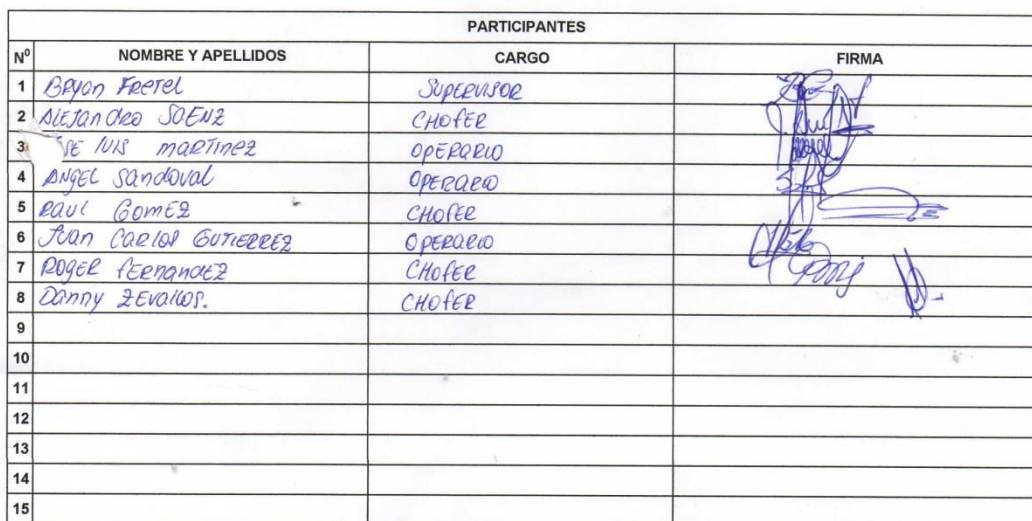 PARTICIPANTES
Nº NOMBRE Y APELLIDOS CARGO FIRMA
1 BRyan FRETEL SUPERVISOR
2 ALEJANDRO SAENZ CHOFER
3 SE LUIS MARTINEZ OPERARIO
4 ANGEL SANDOVAL OPERARIO
5 RAUL GOMEZ CHOFER
6 JUAN CARLOS GUTIERREZ OPERARIO
7 ROGER FERNANDEZ CHOFER
8 Danny ZEVALLOS. CHOFER
9
10
11
12
13
14
15